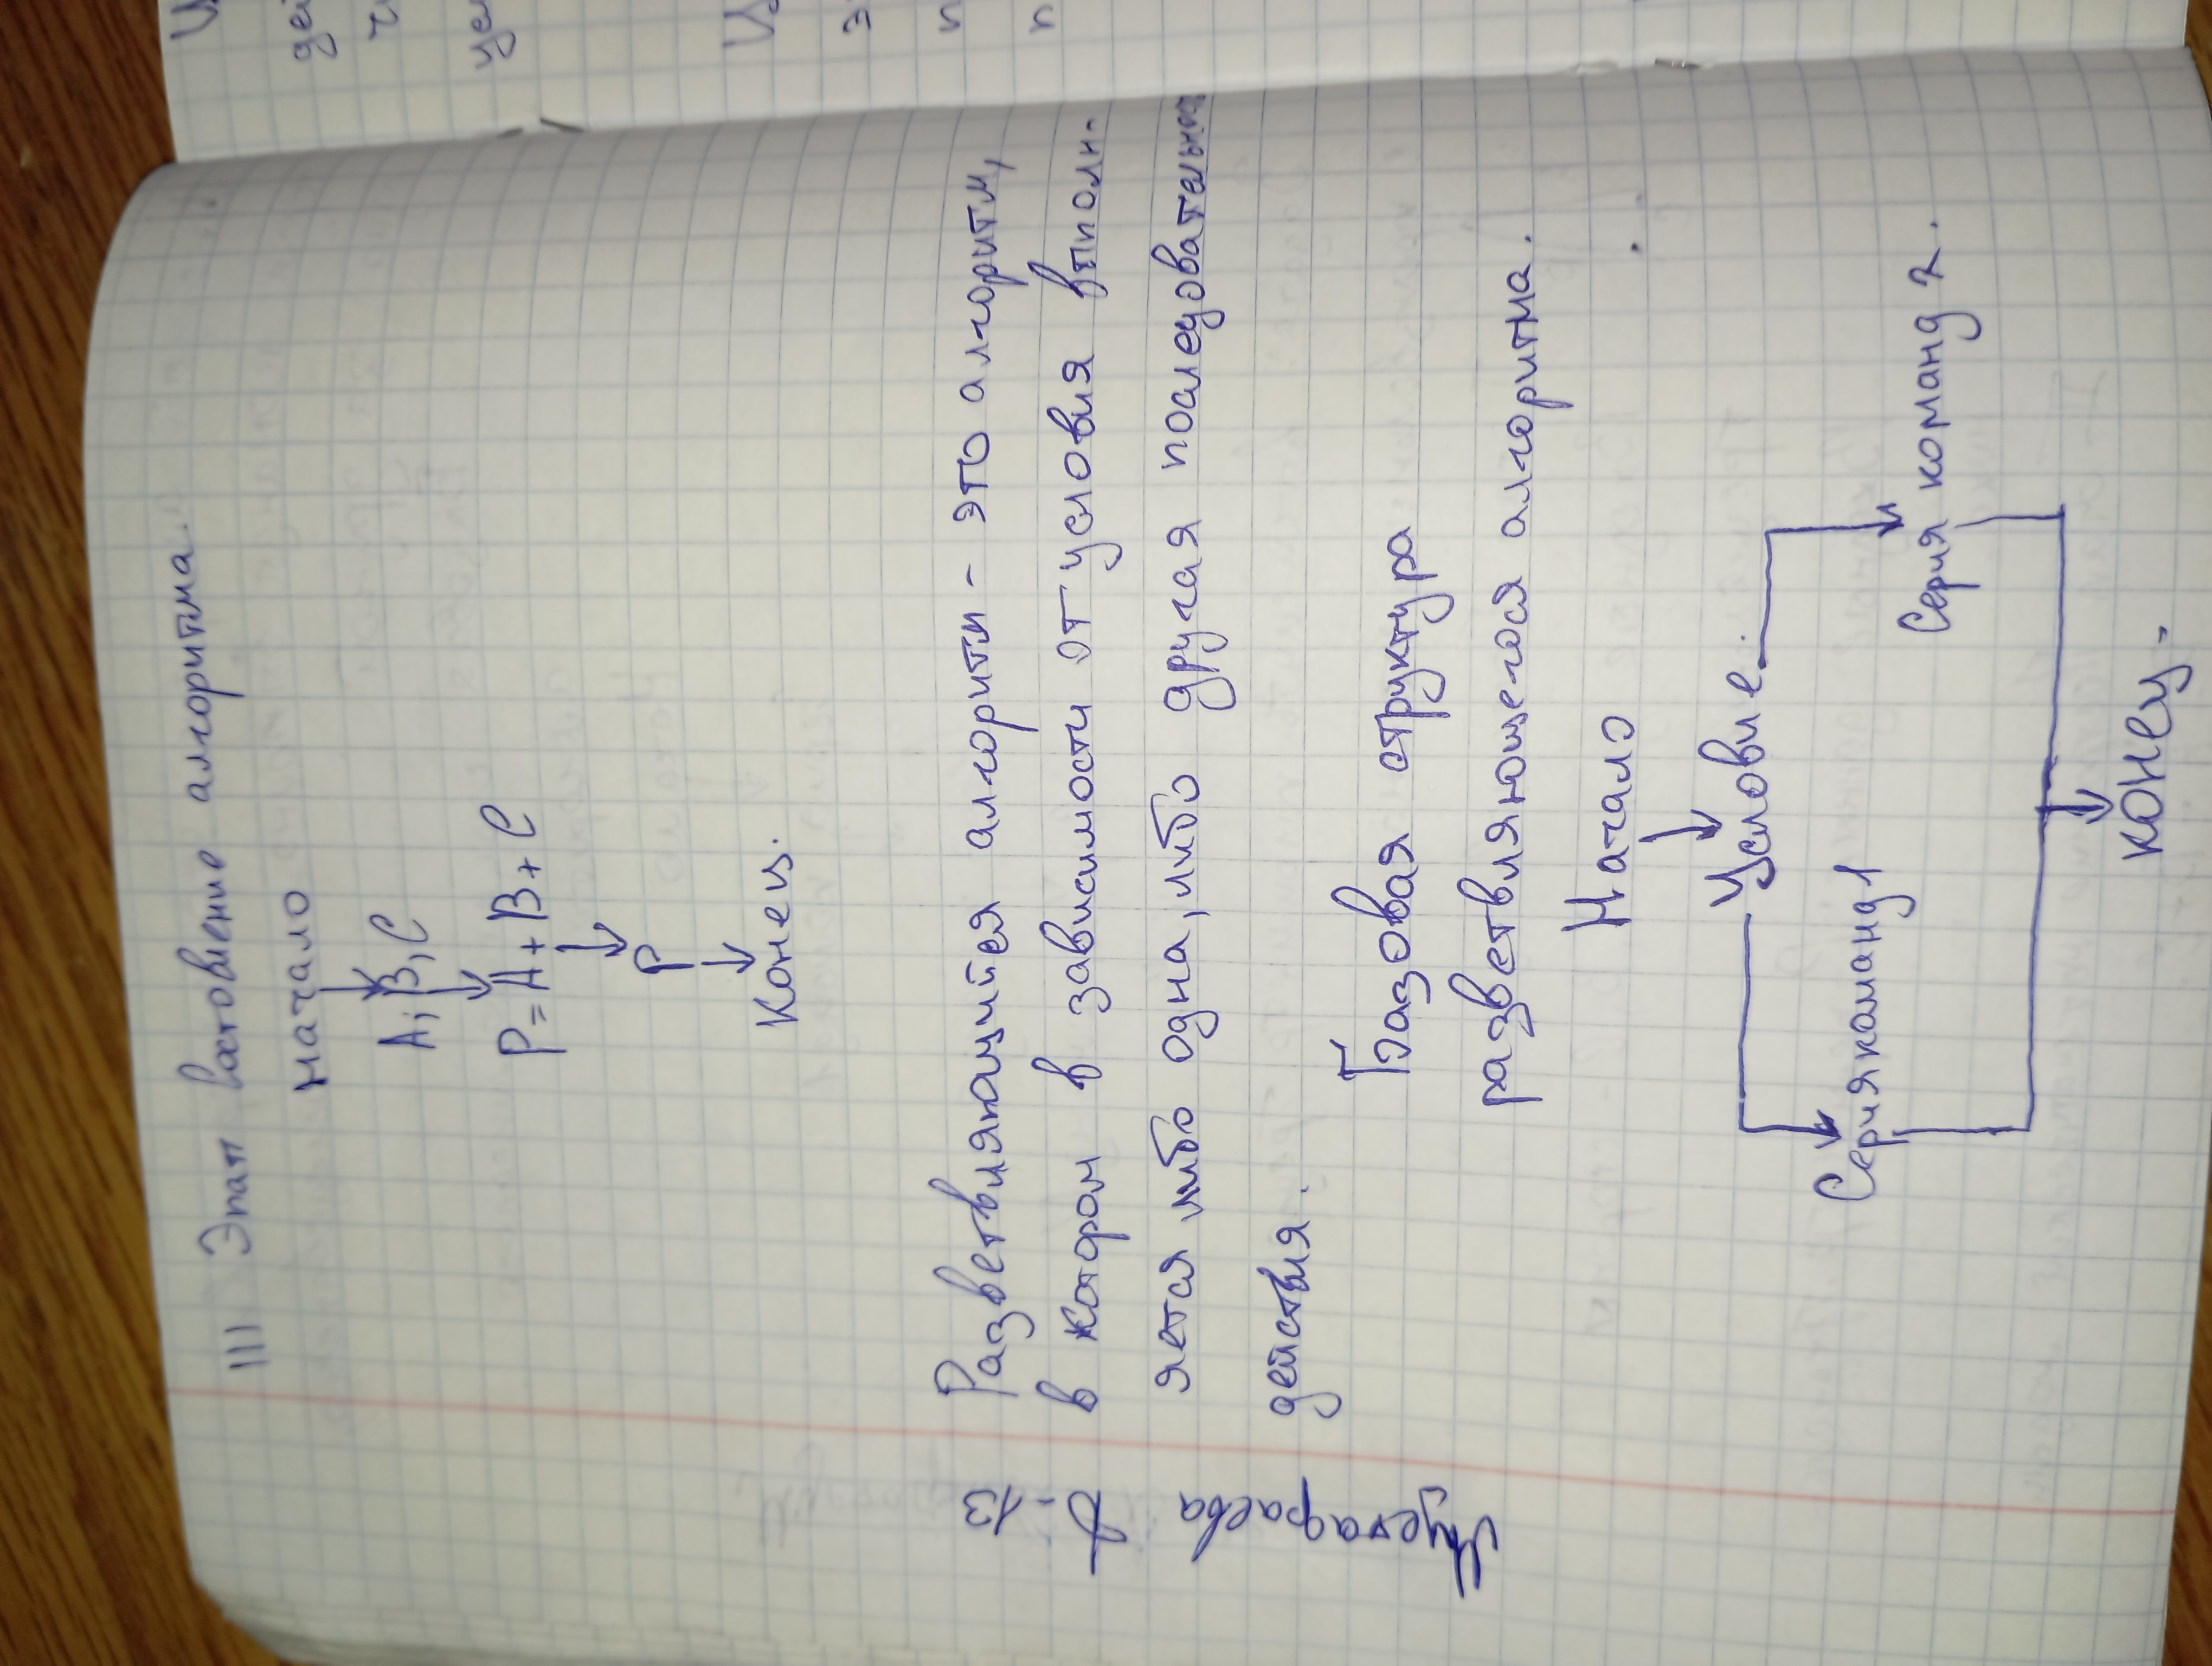 III Этап востовление алгоритма.
начало
A; B, C
P = A + B + C
P
Конец.
Разветвляющийся алгоритм - это алгоритм,
в котором в зависимости от условия выполн-
яется либо одна, либо другая последовательность
действия.
Базовая структура
разветвляющегося алгоритма.
Начало
Условие
Серия команд 1
Серия команд 2.
конец.